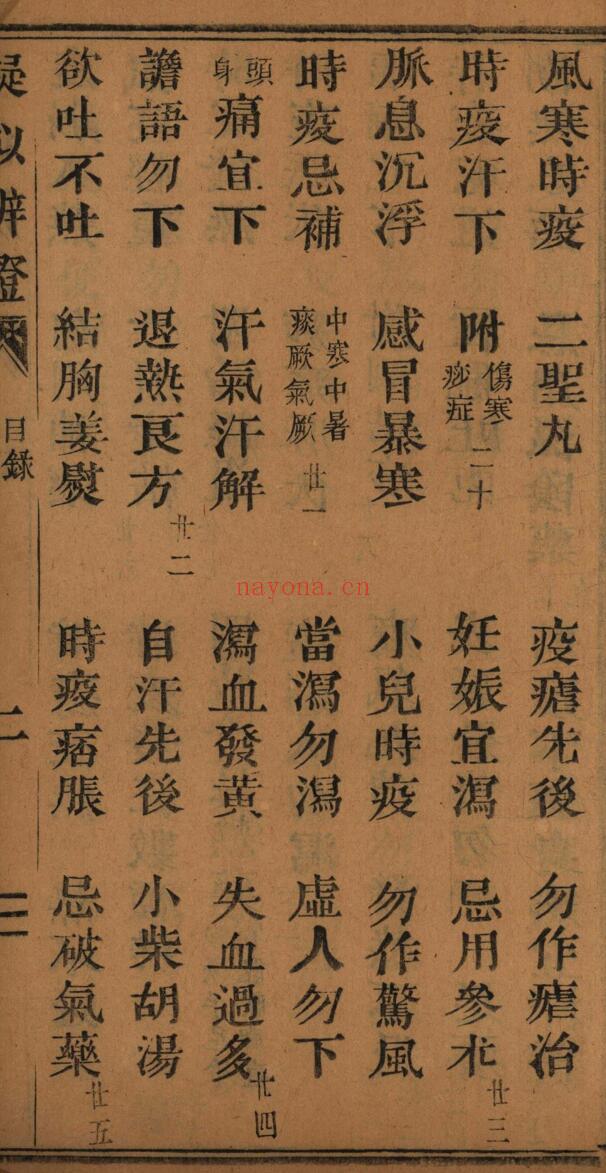 風寒時疫　二聖丸
時疫汗下　附傷寒痧症　二十
脈息沉浮　感冒暴寒
時疫忌補　中寒中暑痰厥氣厥　廿一
頭身痛宜下　汗氣汗解
譫語勿下　退熱良方　廿二
欲吐不吐　結胸姜熨
疫瘧先後　勿作瘧治
妊娠宜瀉　忌用參朮　廿三
小兒時疫　勿作驚風
當瀉勿瀉　虛人勿下
瀉血發黃　失血過多　廿四
自汗先後　小柴胡湯
時疫痞脹　忌破氣藥　廿五
目錄
二
nayona.cn